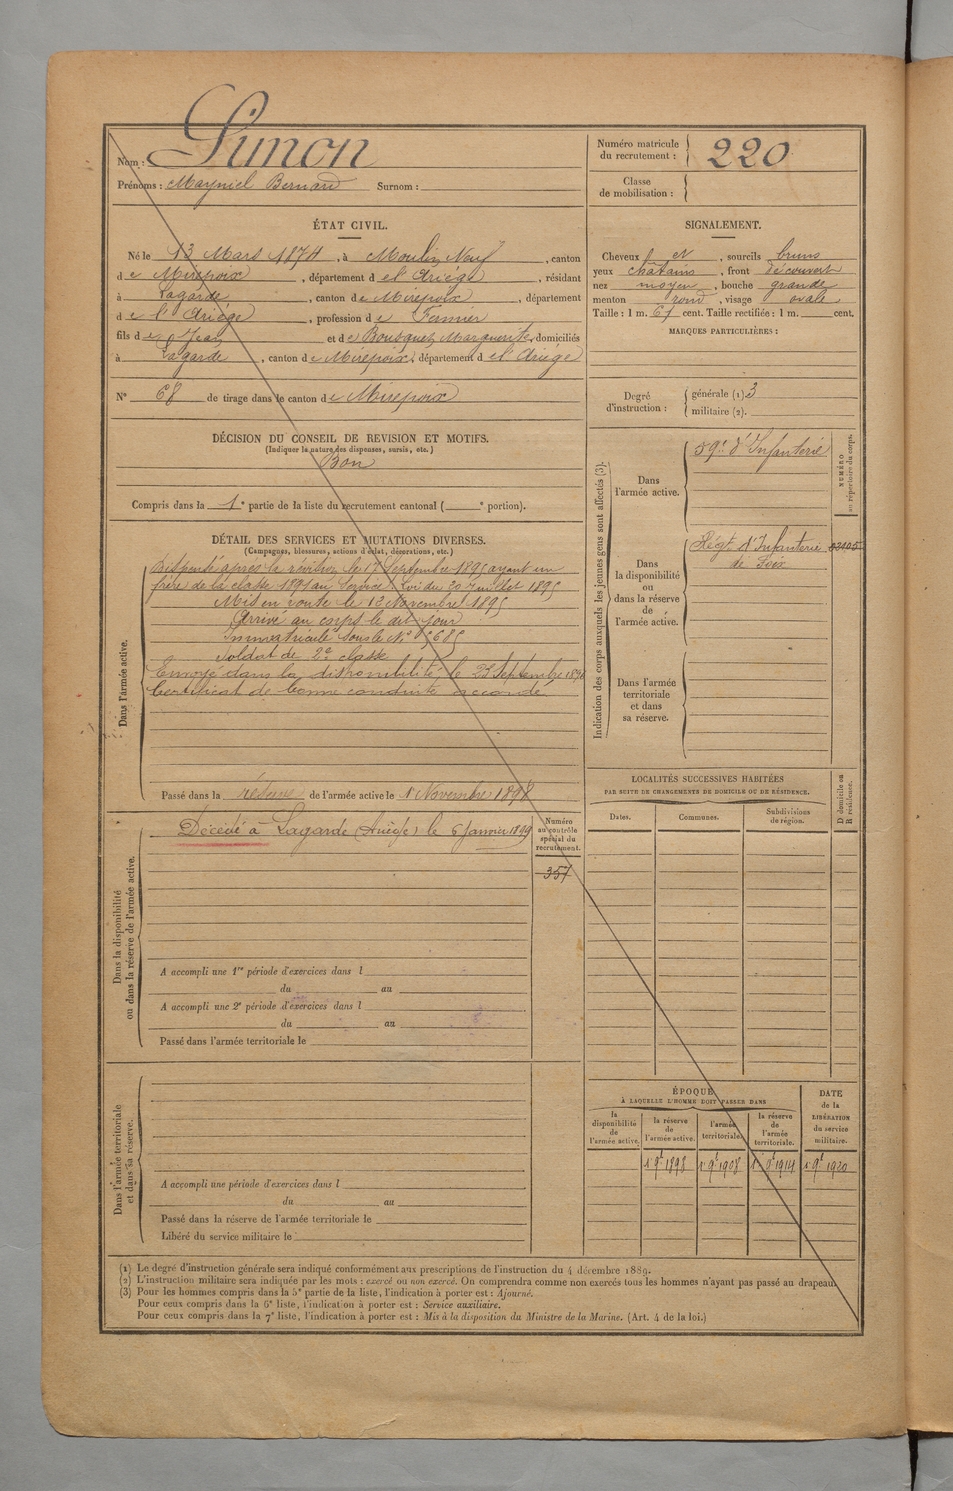 Nom : Simon
Prénoms : Mayniel Bernard Surnom :
Numéro matricule du recrutement : 220
Classe de mobilisation :
ÉTAT CIVIL.
Né le 13 Mars 1874, à Moulin Neuf, canton
de Mirepoix, département de l'Ariége, résidant
à Lagarde, canton de Mirepoix, département
de l'Ariége, profession de Fermier
fils de Jean et de Bousquet Marguerite, domiciliés
à Lagarde, canton de Mirepoix, département de l'Ariége
N° 68 de tirage dans le canton de Mirepoix
SIGNALEMENT.
Cheveux et, sourcils bruns
yeux châtains, front découvert
nez moyen, bouche grande
menton rond, visage ovale
Taille : 1 m. 67 cent. Taille rectifiée : 1 m. cent.
MARQUES PARTICULIÈRES :
Degré d'instruction : générale (1) 3
militaire (2).
DÉCISION DU CONSEIL DE REVISION ET MOTIFS.
(Indiquer la nature des dispenses, sursis, etc.)
Bon
Compris dans la 1e partie de la liste du recrutement cantonal ( e portion).
DÉTAIL DES SERVICES ET MUTATIONS DIVERSES.
(Campagnes, blessures, actions d'éclat, décorations, etc.)
Dans l'armée active.
Dispensé après la révision le 17 Septembre 1895 ayant un
frère de la classe 1891 au service. Loi du 20 Juillet 1895
Mis en route le 12 Novembre 1895
Arrivé au corps le dit jour
Immatriculé sous le N° 5685
Soldat de 2e classe
Envoyé dans la disponibilité le 23 Septembre 1896
Certificat de bonne conduite accordé
Passé dans la réserve de l'armée active le 1er Novembre 1898
Indication des corps auxquels les jeunes gens sont affectés (3).
NUMÉRO au répertoire du corps.
Dans l'armée active.
59e d'Infanterie
Dans la disponibilité ou dans la réserve de l'armée active.
Régt d'Infanterie
de Foix
Dans l'armée territoriale et dans sa réserve.
LOCALITÉS SUCCESSIVES HABITÉES
PAR SUITE DE CHANGEMENTS DE DOMICILE OU DE RÉSIDENCE.
Dates. Communes. Subdivisions de région. D domicile ou R résidence.
Dans la disponibilité ou dans la réserve de l'armée active.
Décédé à Lagarde (Ariège) le 6 Janvier 1899
Numéro au contrôle spécial du recrutement.
357
A accompli une 1re période d'exercices dans l
du au
A accompli une 2e période d'exercices dans l
du au
Passé dans l'armée territoriale le
Dans l'armée territoriale et dans sa réserve.
A accompli une période d'exercices dans l
du au
Passé dans la réserve de l'armée territoriale le
Libéré du service militaire le
ÉPOQUE
À LAQUELLE L'HOMME DOIT PASSER DANS
la disponibilité de l'armée active.
la réserve de l'armée active.
l'armée territoriale.
la réserve de l'armée territoriale.
DATE de la LIBÉRATION du service militaire.
1er 9bre 1898 1er 9bre 1908 1er 9bre 1914 1er 9bre 1920
(1) Le degré d'instruction générale sera indiqué conformément aux prescriptions de l'instruction du 4 décembre 1889.
(2) L'instruction militaire sera indiquée par les mots : exercé ou non exercé. On comprendra comme non exercés tous les hommes n'ayant pas passé au drapeau.
(3) Pour les hommes compris dans la 5e partie de la liste, l'indication à porter est : Ajourné.
Pour ceux compris dans la 6e liste, l'indication à porter est : Service auxiliaire.
Pour ceux compris dans la 7e liste, l'indication à porter est : Mis à la disposition du Ministre de la Marine. (Art. 4 de la loi.)